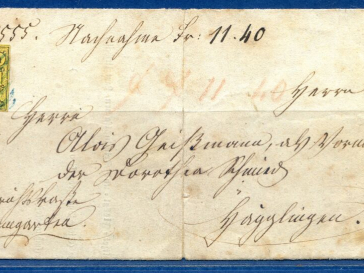 555. Nachnahme Fr: 11.40
11 40
Herrn
Herrn
Alois Geißmann, als Vorm
der Dorothea Schmid
Hägglingen.